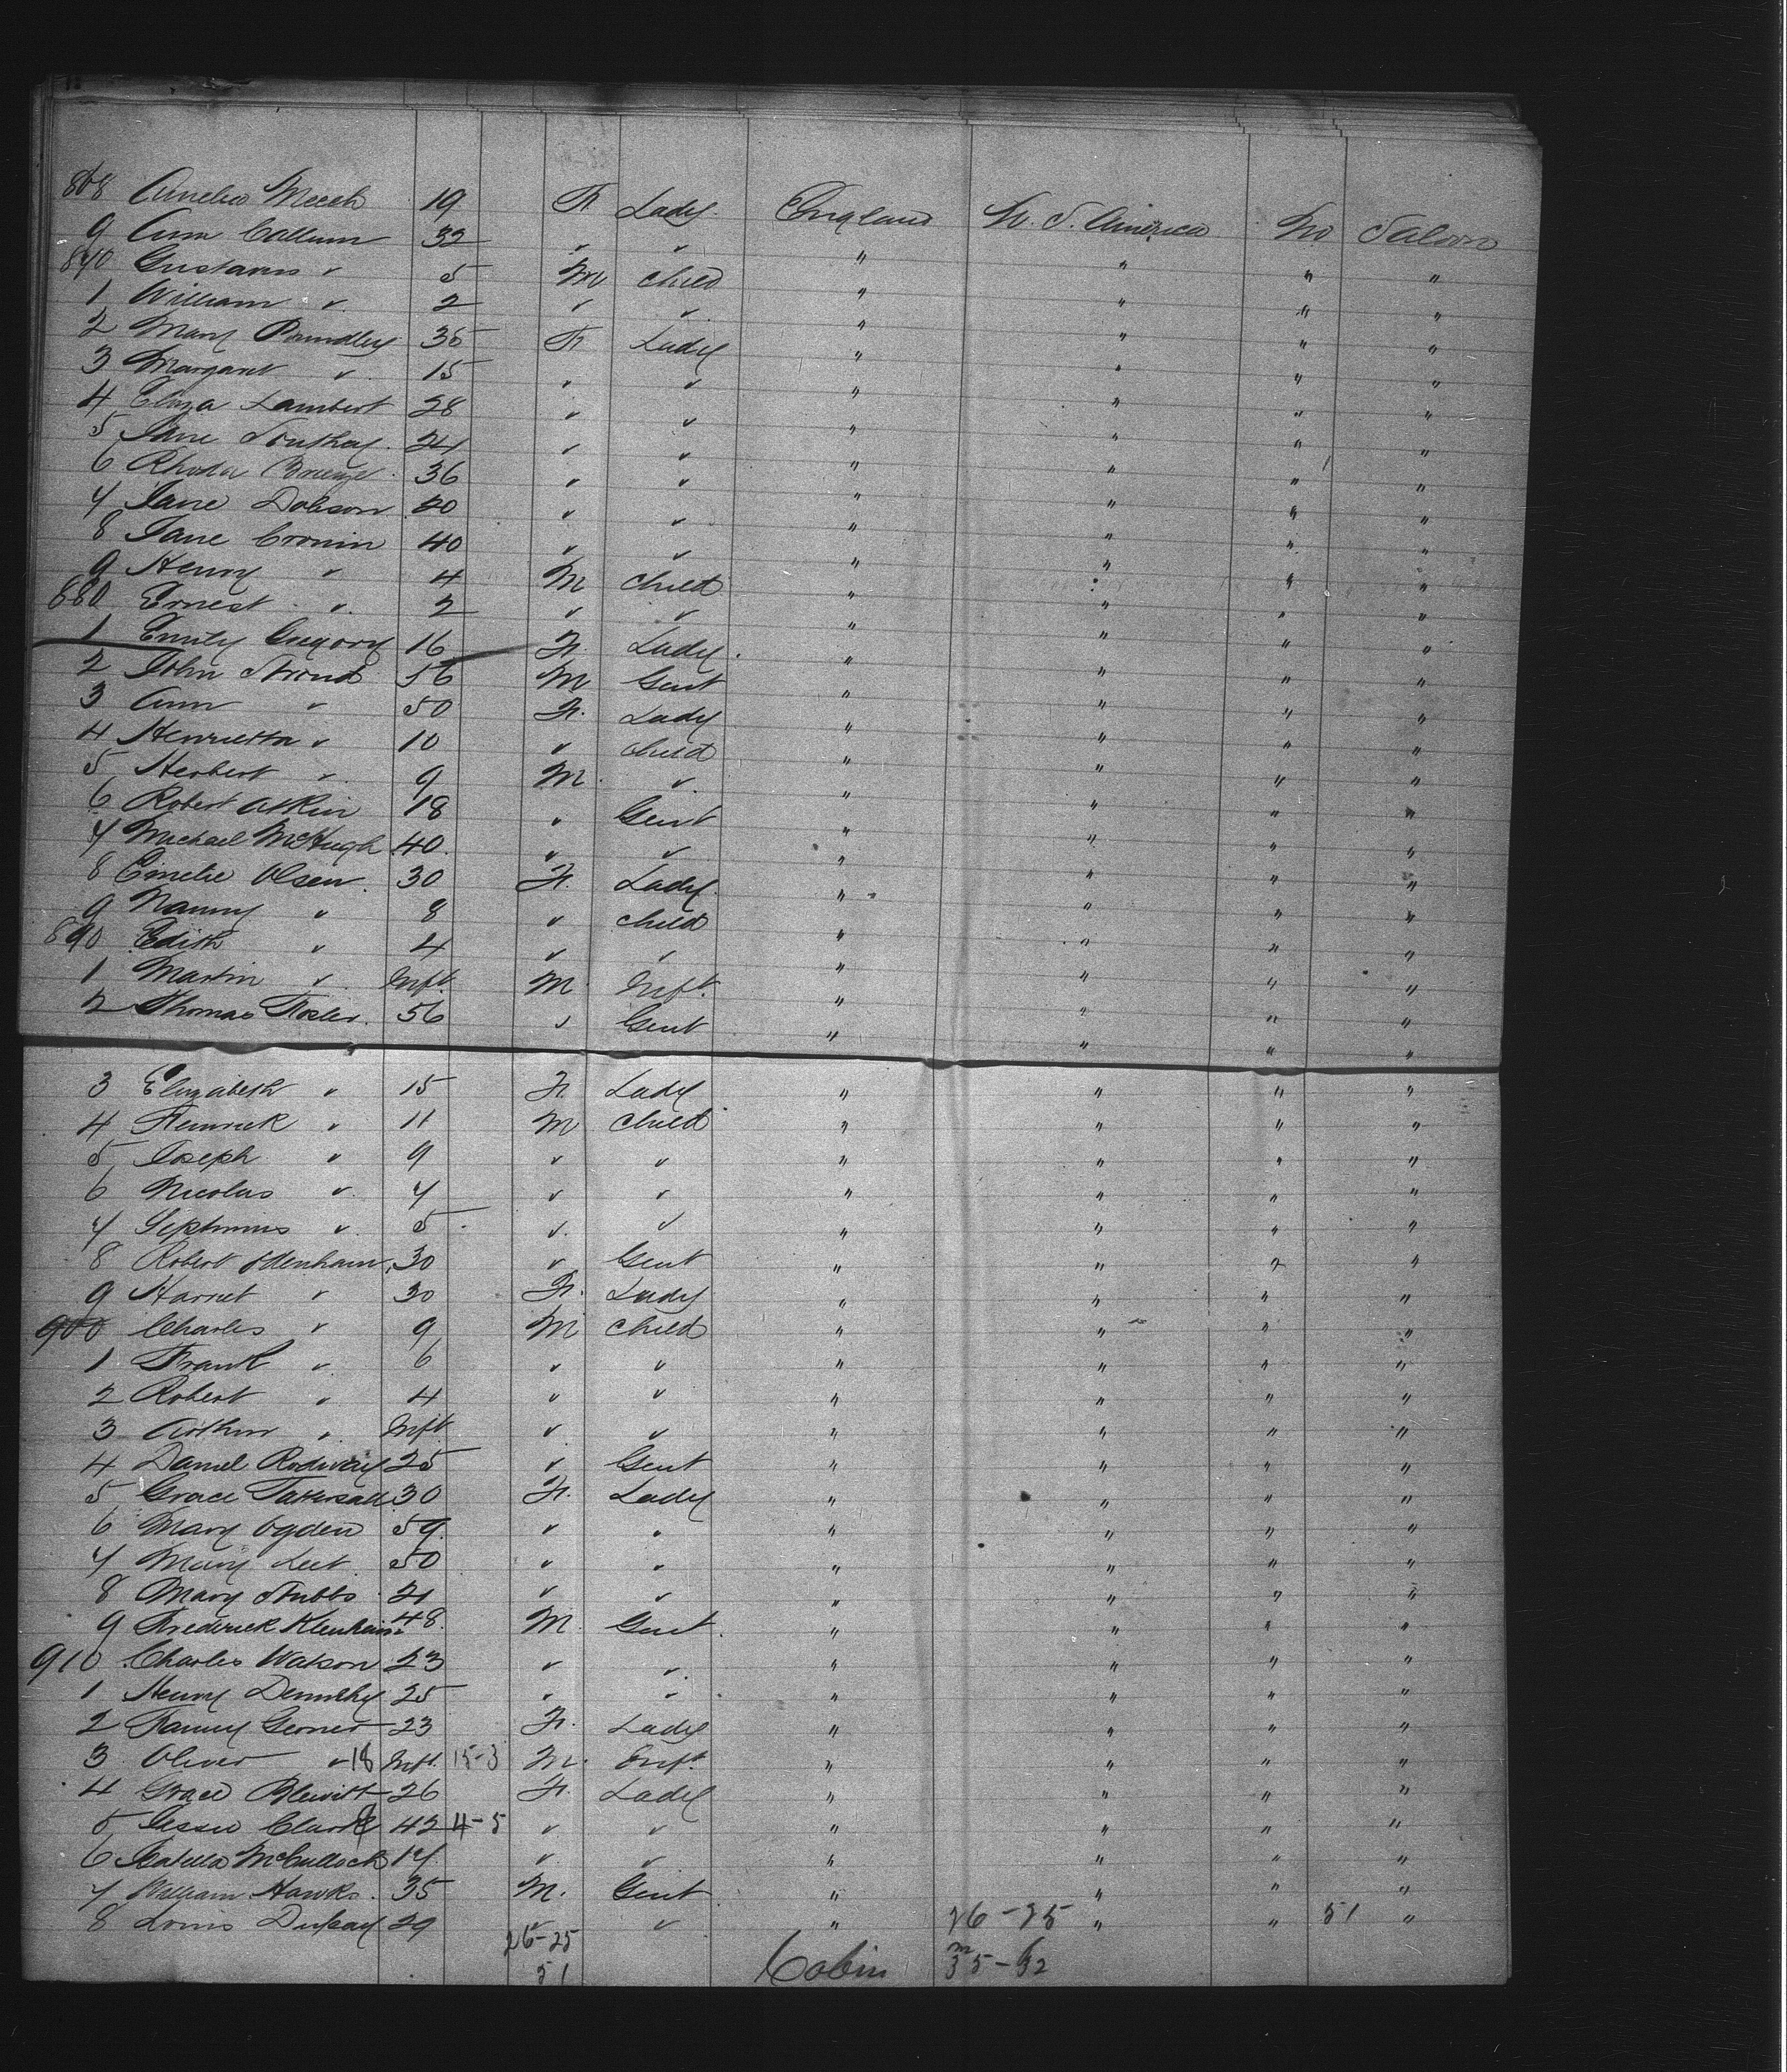 868 Amelia Meech 19 F. Lady. England U. S. America No Saloon
9 Ann Callum 32 " " " " " "
870 Gustavus " 5 M Child " " " "
1 William " 2 " " " " " "
2 Mary Brindley 35 F Lady " " " "
3 Margaret " 15 " " " " " "
4 Eliza Lambert 28 " " " " " "
5 Jane Southey 24 " " " " " "
6 Rhoda 36 " " " " " "
7 Jane Dobson 20 " " " " " "
8 Jane Cronin 40 " " " " " "
9 Henry " 4 M Child " " " "
880 Ernest " 2 " " " " " "
1 Emily Gregory 16 F. Lady. " " " "
2 John Stroud 56 M Gent " " " "
3 Ann " 50 F. Lady " " " "
4 Henrietta " 10 " Child " " " "
5 Herbert " 9 M. " " " " "
6 Robert Atkin 18 " Gent " " " "
7 Michael McHugh 40 " " " " " "
8 Emelie Olsen 30 F. Lady. " " " "
9 Nanny " 8 " Child " " " "
890 Edith " 4 " " " " " "
1 Martin " Inft. M Inft. " " " "
2 Thomas Foster 56 " Gent " " " "
3 Elizabeth " 15 F. Lady " " " "
4 Fenwick " 11 M Child " " " "
5 Joseph " 9 " " " " " "
6 Nicolas " 7 " " " " " "
7 Septimus " 5 " " " " " "
8 Robert Odenham 30 " Gent " " " "
9 Harriet " 30 F. Lady " " " "
900 Charles " 9 M Child " " " "
1 Frank " 6 " " " " " "
2 Robert " 4 " " " " " "
3 Arthur " Inft " " " " " "
4 Daniel Rodway 25 " Gent " " " "
5 Grace Tattersall 30 F. Lady " " " "
6 Mary Ogden 59 " " " " " "
7 Mary Leet 50 " " " " " "
8 Mary Stubbs 21 " " " " " "
9 Frederick 48 M. Gent " " " "
910 Charles Watson 23 " " " " " "
1 Henry 25 " " " " " "
2 Fanny 23 F. Lady " " " "
3 Oliver " 18 Inft. 15-3 M. Inft. " " " "
4 Grace Blewitt 26 F. Lady " " " "
5 Jessie Clark 42 4-5 " " " " " "
6 Isabella McCullock 17 " " " " " "
7 William Hawks 35 M. Gent " " " "
8 Louis 29 " " " 26-25 " " 51 "
26-25
51 Cabin 35-32